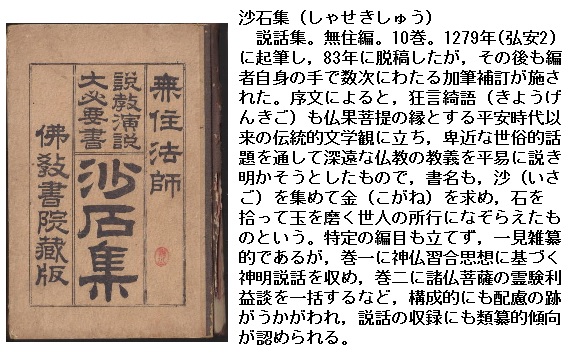 無住法師
説教演説
大必要書
沙石集
佛敎書院藏版
沙石集（しゃせきしゅう）
説話集。無住編。10巻。1279年(弘安2)
に起筆し，83年に脱稿したが，その後も編
者自身の手で数次にわたる加筆補訂が施さ
れた。序文によると，狂言綺語（きようげ
んきご）も仏果菩提の縁とする平安時代以
来の伝統的文学観に立ち，卑近な世俗的話
題を通して深遠な仏教の教義を平易に説き
明かそうとしたもので，書名も，沙（いさ
ご）を集めて金（こがね）を求め，石を
拾って玉を磨く世人の所行になぞらえたも
のという。特定の編目も立てず，一見雑纂
的であるが，巻一に神仏習合思想に基づく
神明説話を収め，巻二に諸仏菩薩の霊験利
益談を一括するなど，構成的にも配慮の跡
がうかがわれ，説話の収録にも類纂的傾向
が認められる。